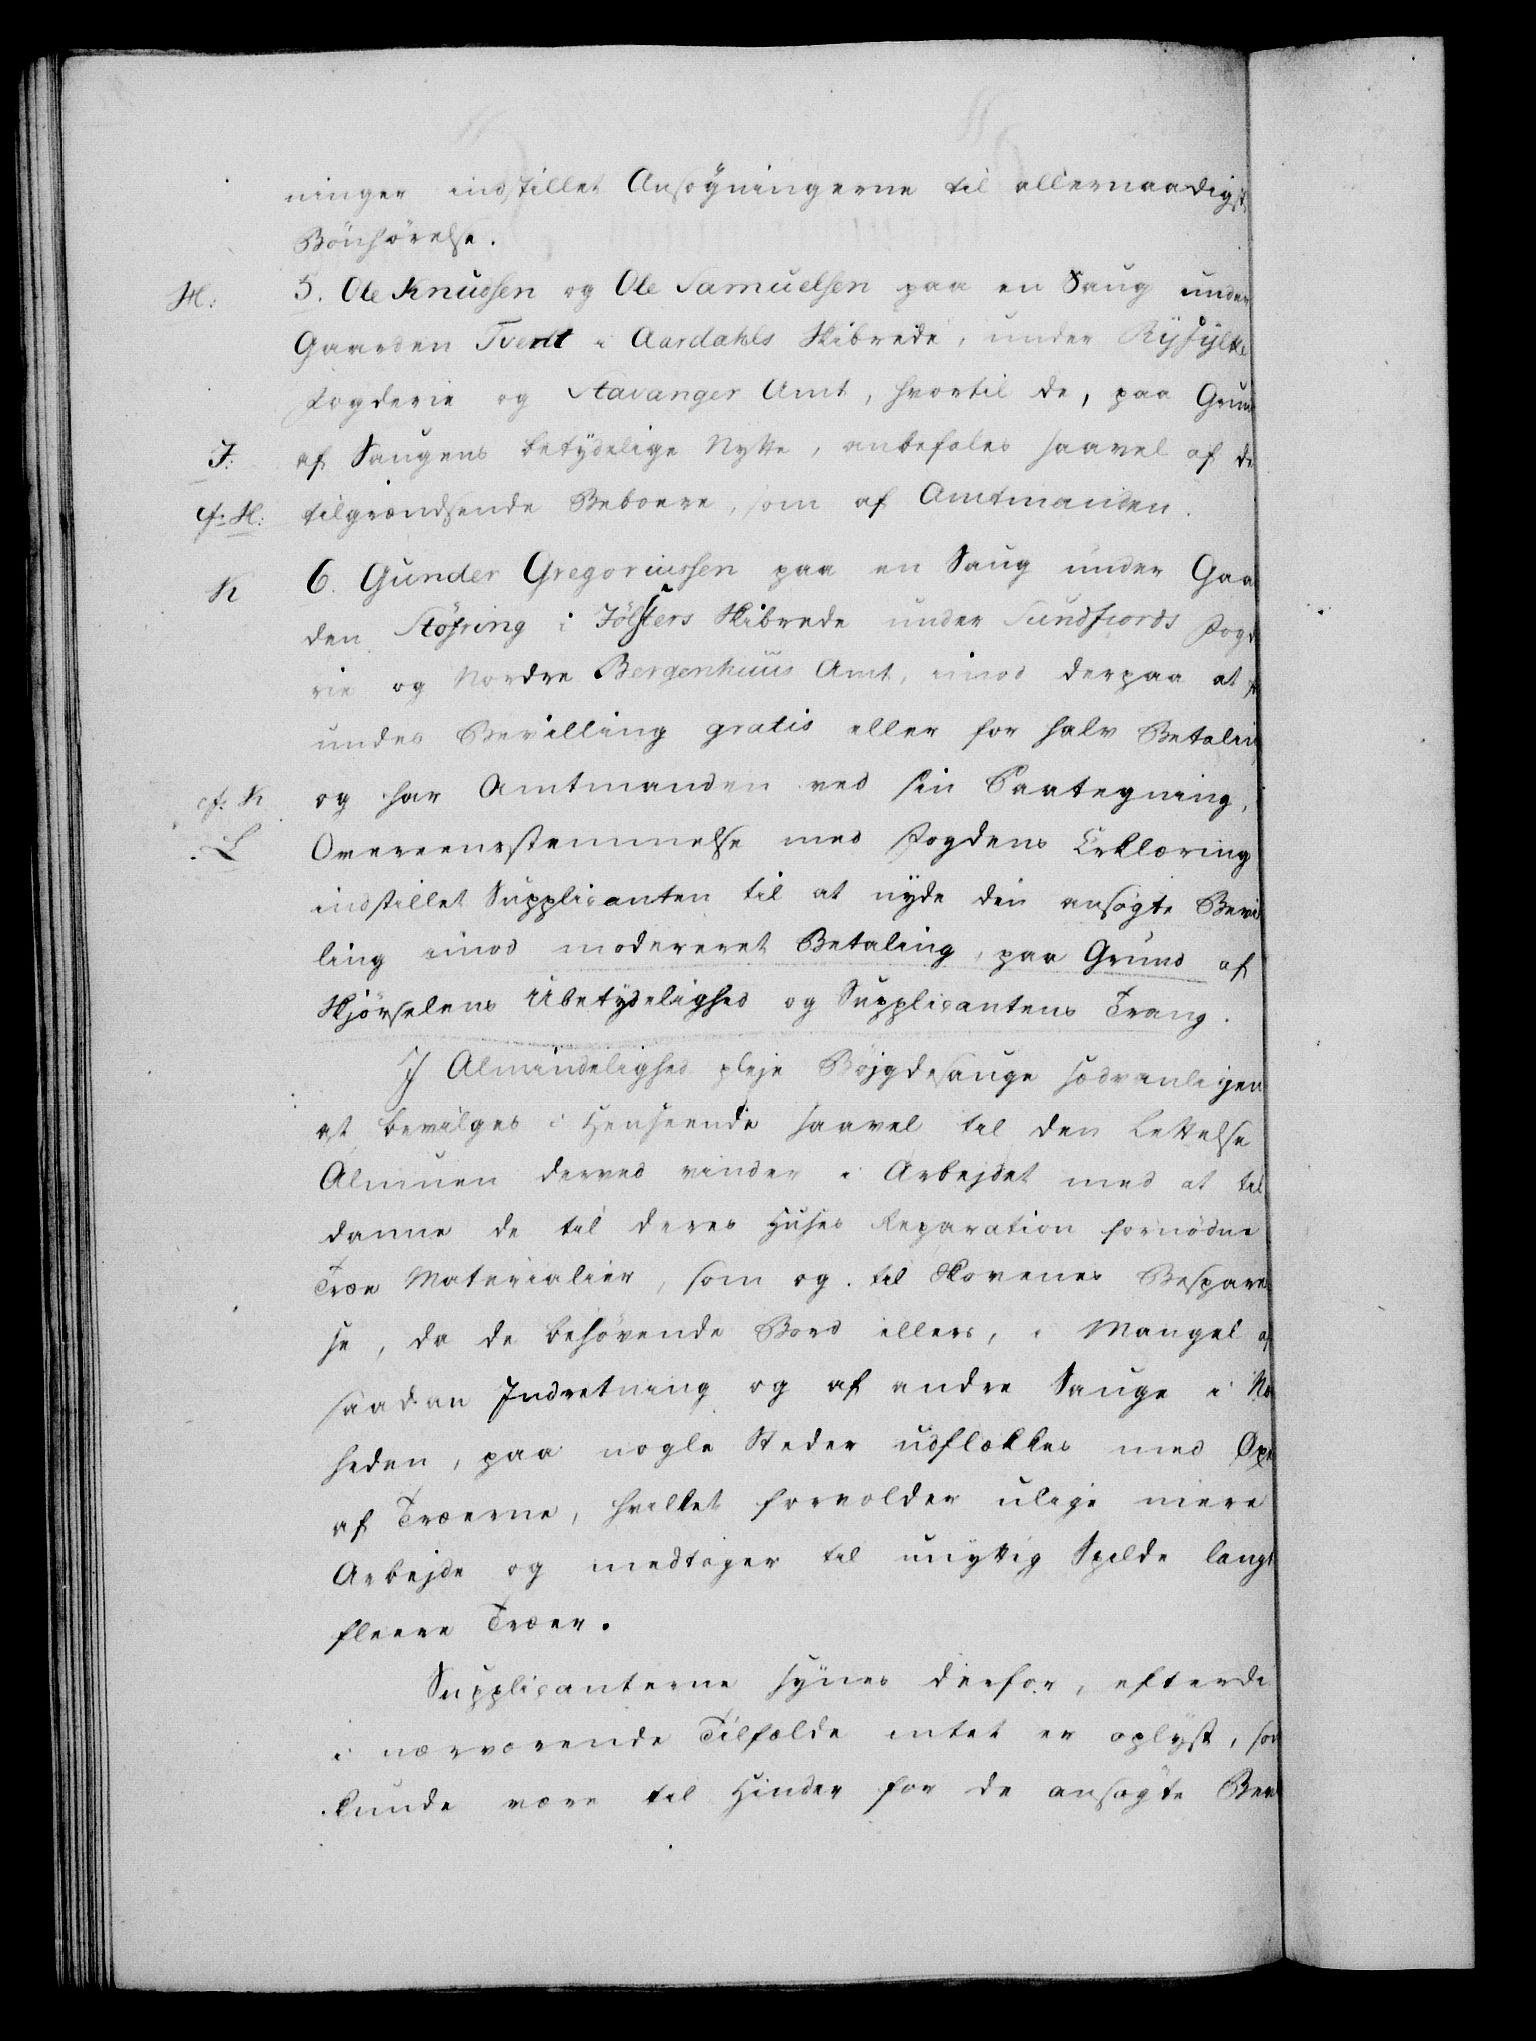 ninger indstillet Ansøgningerne til allernaadigst
Bönhörelse.
H: 5. Ole Knudsen og Ole Samuelsen paa en Saug under
Gaarden Tvent i Aardahls Skibrede, under Ryfylke
Fogderie og Stavanger Amt, hvortil de, paa Grund
J: af Saugens betydelige Nytte, anbefales saavel af de
cf. H: tilgrændsende Beboere, som af Amtmanden.
K 6. Gunder Gregoriussen paa en Saug under Gaar
den Stöfring i Jölsters Skibrede under Sundfiords Fogd
rie og Nordre Bergenhuus Amt, imod derpaa at
undes Bevilling gratis eller for halv Betaling
cf. K og har Amtmanden ved sin Paategning,
L Overeensstemmelse med Fogdens Erklæring
indstillet Supplicanten til at nyde den ansøgte Bevil
ling imod modereret Betaling, paa Grund af
Skjörselens Ubetydelighed og Supplicantens Trang.
I Almindelighed pleje Böjgdesauge sædvanligen
at bevilges i Henseende saavel til den Lettelse
Almuen derved vinder i Arbejdet med at til
danne de til deres Huses Reparation fornödne
Træe Materialier, som og til Skovenes Besparel
se, da de behövende Bord ellers, i Mangel af
saadan Indretning og af andre Sauge i Nær
heden, paa nogle Steder udflækkes med Öxe
af Træerne, hvilket forvolder ulige mere
Arbejde og medtager til unyttig Spilde langt
fleere Træer.
Supplicanterne synes derfor, efterdi
i nærværende Tilfælde intet er oplyst, som
kunde være til Hinder for de ansøgte Bev